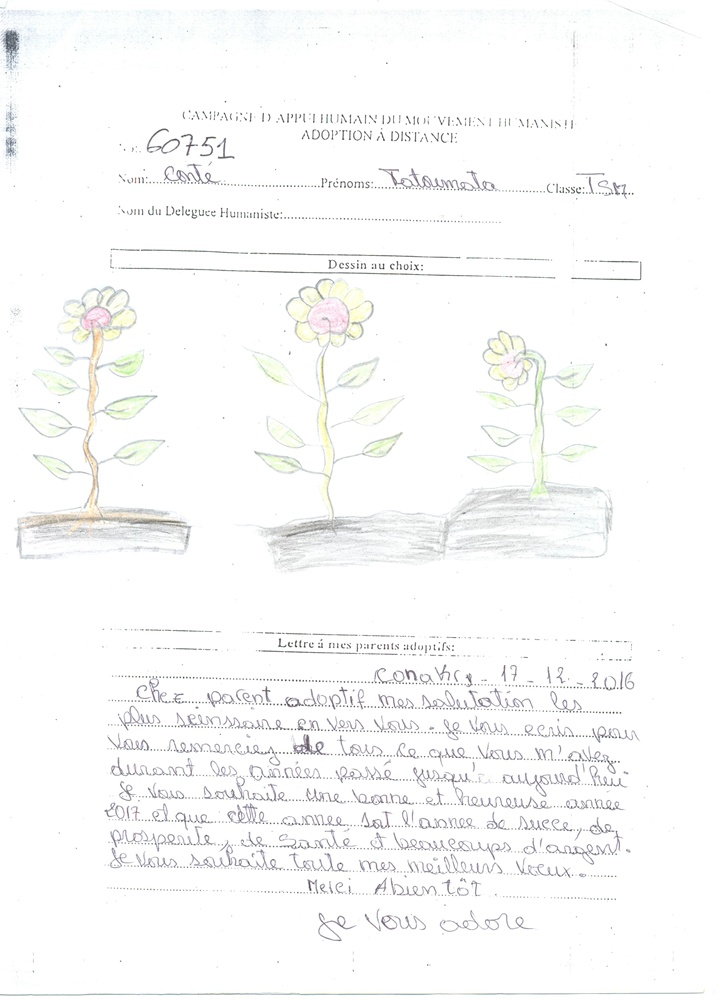 CAMPAGNE D'APPUI HUMAIN DU MOUVEMENT HUMANISTE
ADOPTION À DISTANCE
No: 60751
Nom: Conté Prénoms: Fatoumata Classe: TSM
Nom du Deleguee Humaniste:
Dessin au choix:
Lettre á mes parents adoptifs:
Conakry - 17 - 12 - 2016
Chez parent adoptif mes salutation les
plus seinssaire en vers vous. Je vous ecris pour
vous remerciez de tous ce que vous m'avez
durant les années passé jusqu'à aujourd'hui
Je vous souhaite une bonne et heureuse annee
2017 et que cette annee soit l'annee de succe, de
prosperite, de Santé et beaucoups d'argent.
Je vous souhaite toute mes meilleurs voeux.
Merci Abientôt
Je vous adore